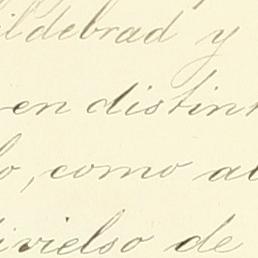 ildebrad y
en distint
o, como al
ivielso de